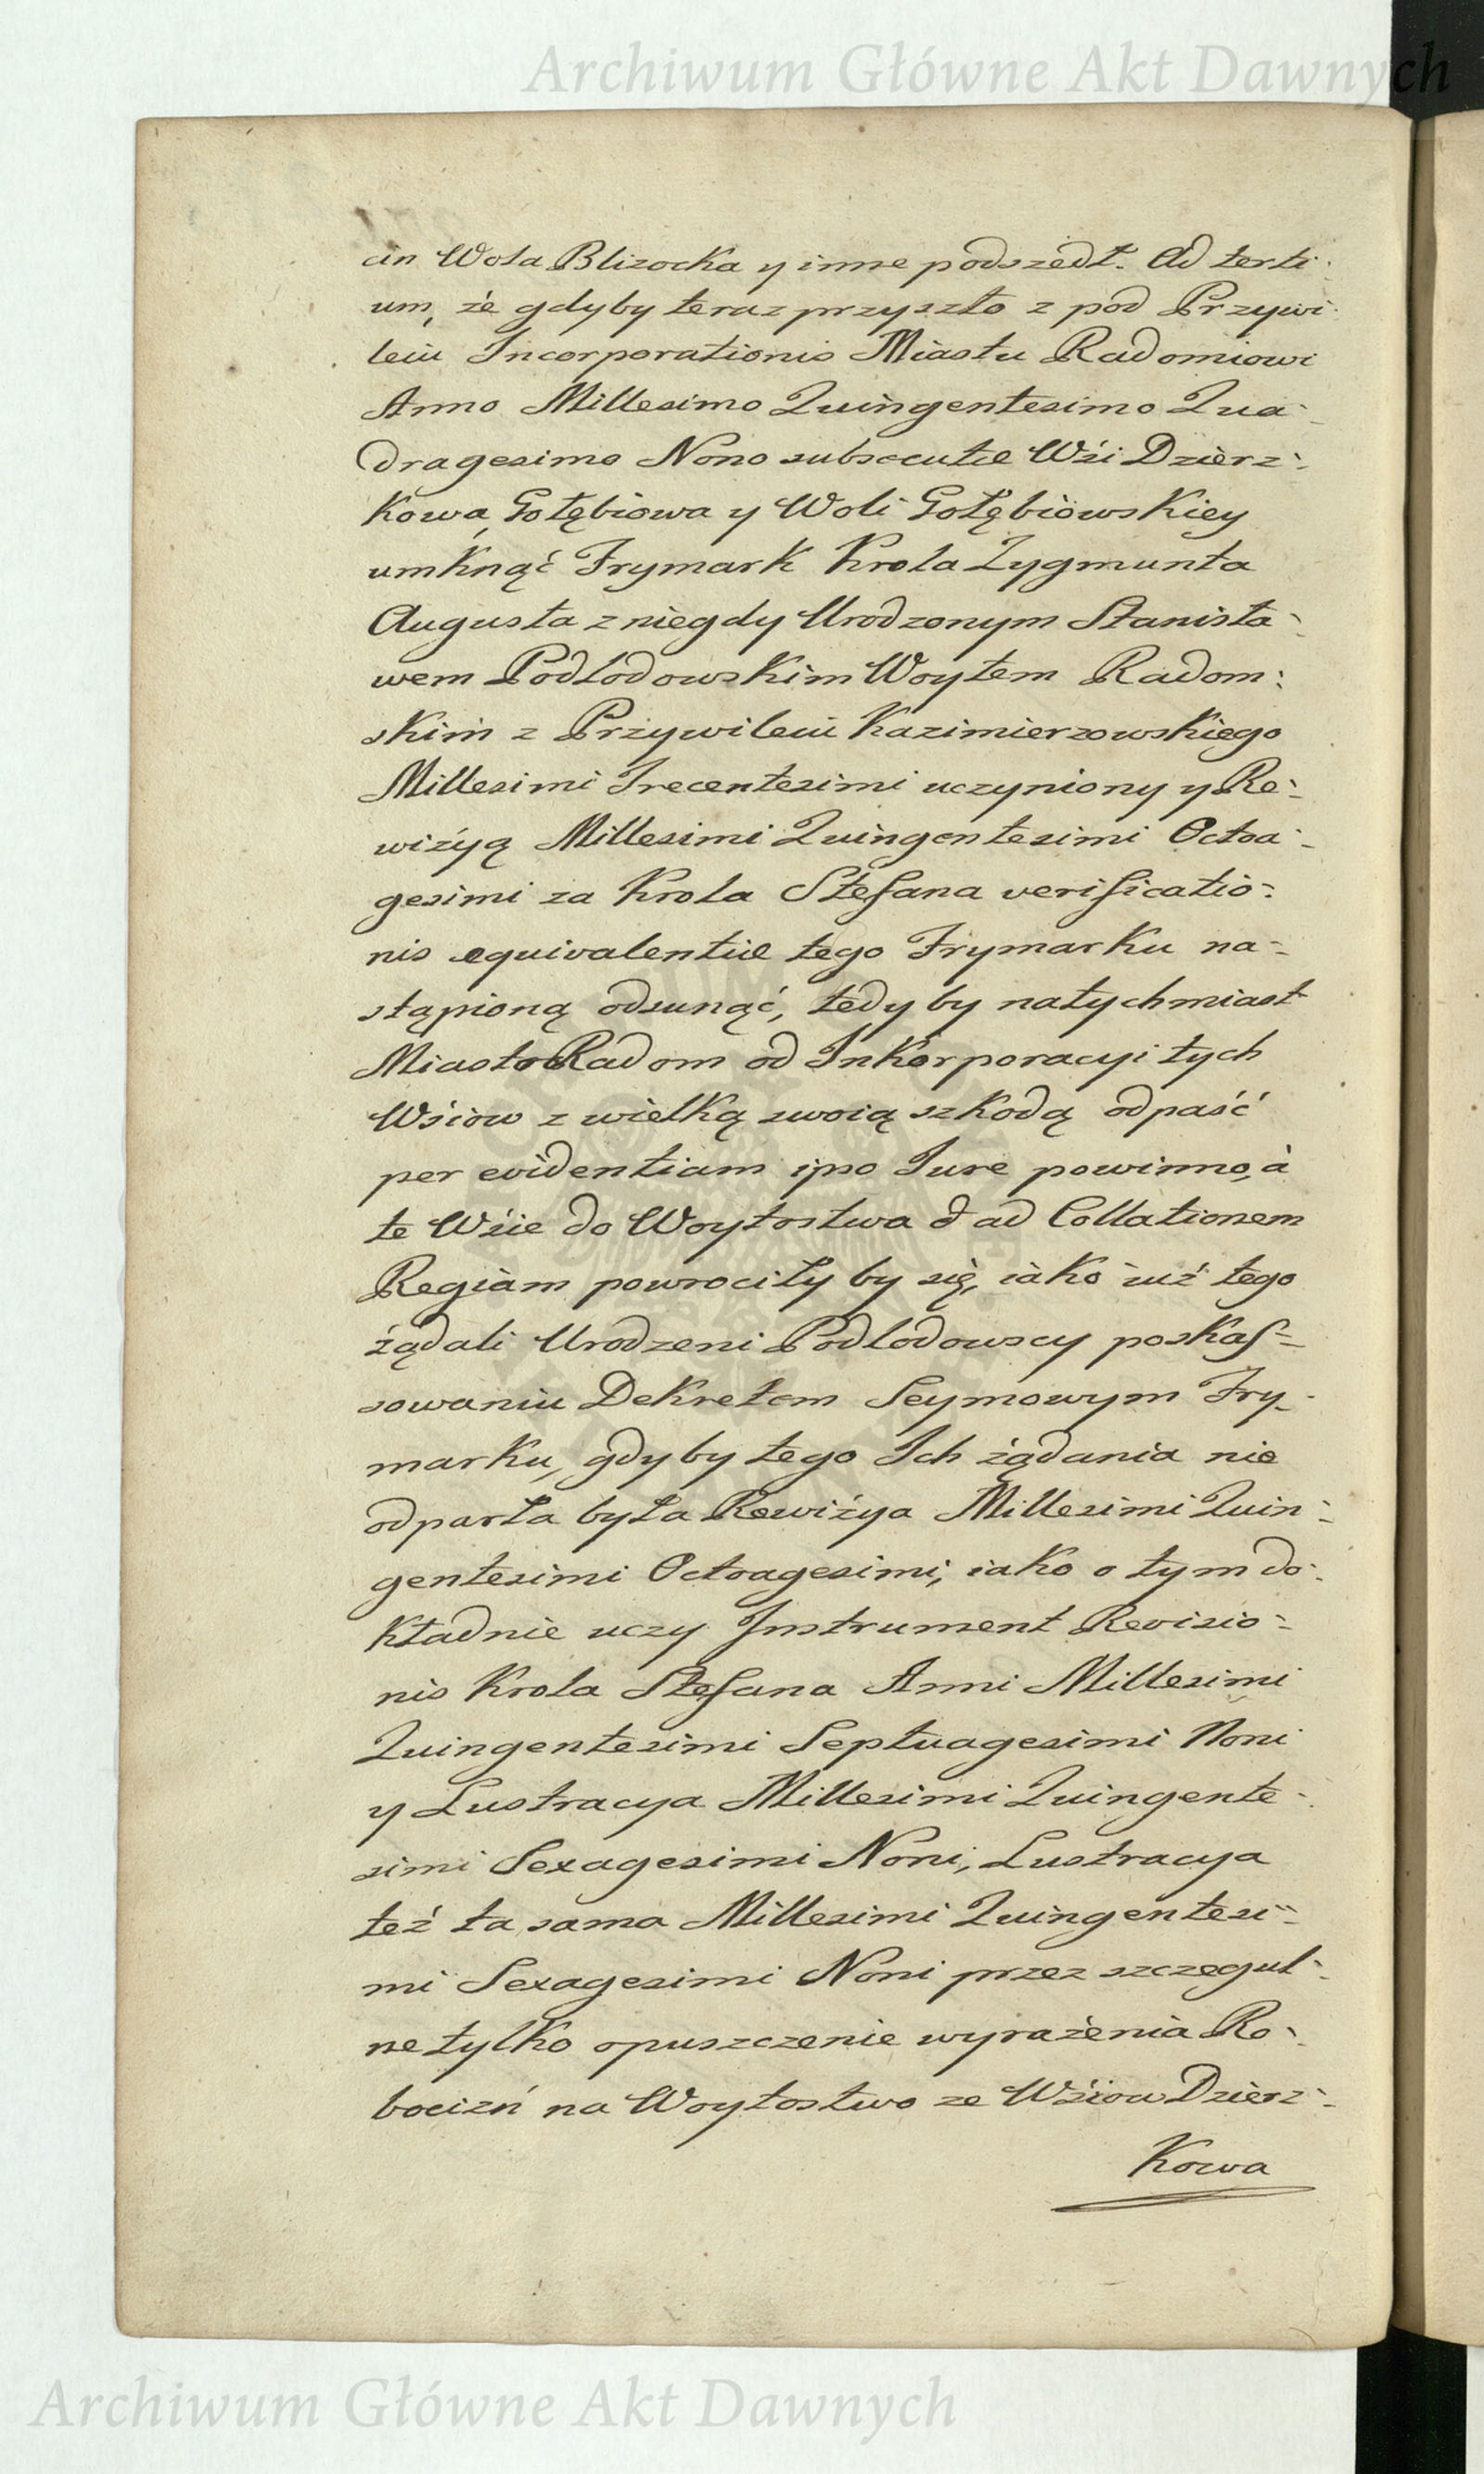 Archiwum Główne Akt Dawnych
cin Wola Blizocka y inne podszedł. Ad terti-
um, że gdyby teraz przyszło z pod Przywi-
leiu Incorporationis Miastu Radomiowi
Anno Millesimo Quingentesimo Qua-
dragesimo Nono subsecutæ Wśi Dzierz-
kowa, Gołębiowa y Woli Gołębiowskiey
umknąć Frymark Krola Zygmunta
Augusta z niegdy Urodzonym Stanisła-
wem Podlodowskim Woytem Radom-
skim z Przywileiu Kazimierzowskiego
Millesimi Trecentesimi uczyniony y Re-
wizyą Millesimi Quingentesimi Octoa-
gesimi za Krola Stefana verificatio-
nis equivalentiæ tego Frymarku na-
stąpioną odsunąć, tedy by natychmiast
Miasto Radom od Inkorporacyi tych
Wśiow z wielką swoią szkodą odpaść
per evidentiam ipso Iure powinno, à
te Wśie do Woytostwa d ad Collationem
Regiam powrociły by się, iako iuż tego
żądali Urodzeni Podlodowscy poskas-
sowaniu Dekretem Seymowym Fry-
marku, gdyby tego Ich żądania nie
odparła była Rewizya Millesimi Quin-
gentesimi Octoagesimi, iako o tym do-
kładnie uczy Instrument Revisio-
nis Krola Stefana Anni Millesimi
Quingentesimi Septuagesimi Noni
y Lustracya Millesimi Quingente-
simi Sexagesimi Noni, Lustracya
też ta sama Millesimi Quingentesi-
mi Sexagesimi Noni przez szczegul-
ne tylko opuszczenie wyrażenia Ro-
bocizń na Woytostwo ze Wśiow Dzierz-
Kowa
Archiwum Główne Akt Dawnych